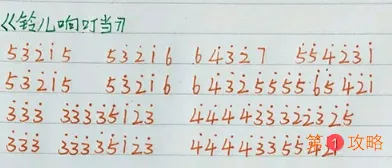 《铃儿响叮当》
5 3̇ 2̇ 1̇ 5 5 3̇ 2̇ 1̇ 6 6 4̇ 3̇ 2̇ 7 5̇ 5̇ 4̇ 2̇ 3̇ 1̇
5 3̇ 2̇ 1̇ 5 5 3̇ 2̇ 1̇ 6 6 4̇ 3̇ 2̇ 5̇ 5̇ 5̇ 5̇ 6̇ 5̇ 4̇ 2̇ 1̇
3̇ 3̇ 3̇ 3̇ 3̇ 3̇ 3̇ 5̇ 1̇ 2̇ 3̇ 4̇ 4̇ 4̇ 4̇ 3̇ 3̇ 3̇ 2̇ 2̇ 3̇ 2̇ 5̇
3̇ 3̇ 3̇ 3̇ 3̇ 3̇ 3̇ 5̇ 1̇ 2̇ 3̇ 4̇ 4̇ 4̇ 4̇ 3̇ 3̇ 5̇ 5̇ 4̇ 2̇ 1̇
第1攻略